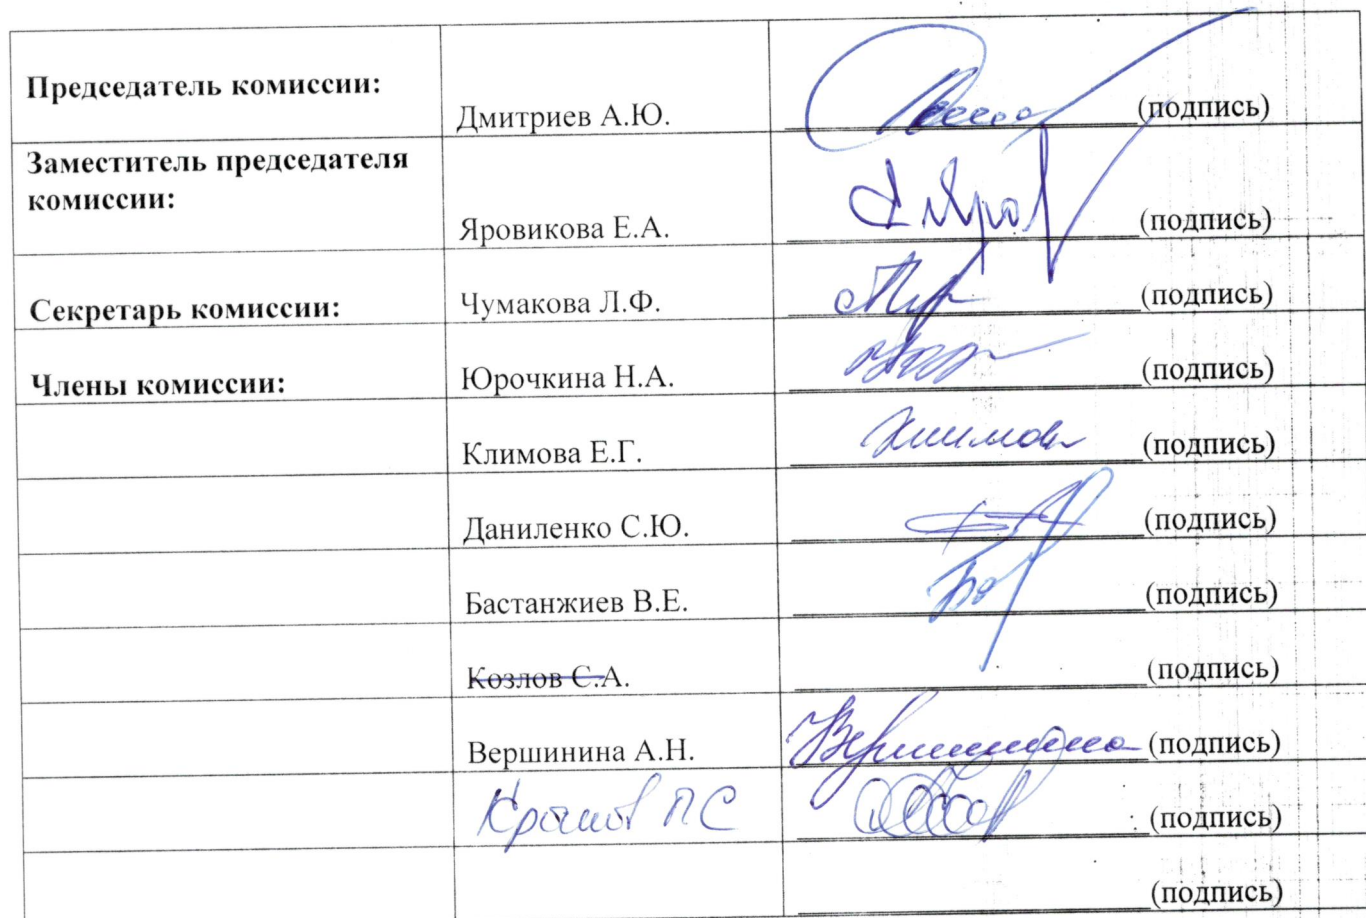 Председатель комиссии: Дмитриев А.Ю. (подпись)
Заместитель председателя
комиссии: Яровикова Е.А. (подпись)
Секретарь комиссии: Чумакова Л.Ф. (подпись)
Члены комиссии: Юрочкина Н.А. (подпись)
Климова Е.Г. Климова (подпись)
Даниленко С.Ю. (подпись)
Бастанжиев В.Е. (подпись)
Козлов С.А. (подпись)
Вершинина А.Н. Вершинина (подпись)
ПС (подпись)
(подпись)